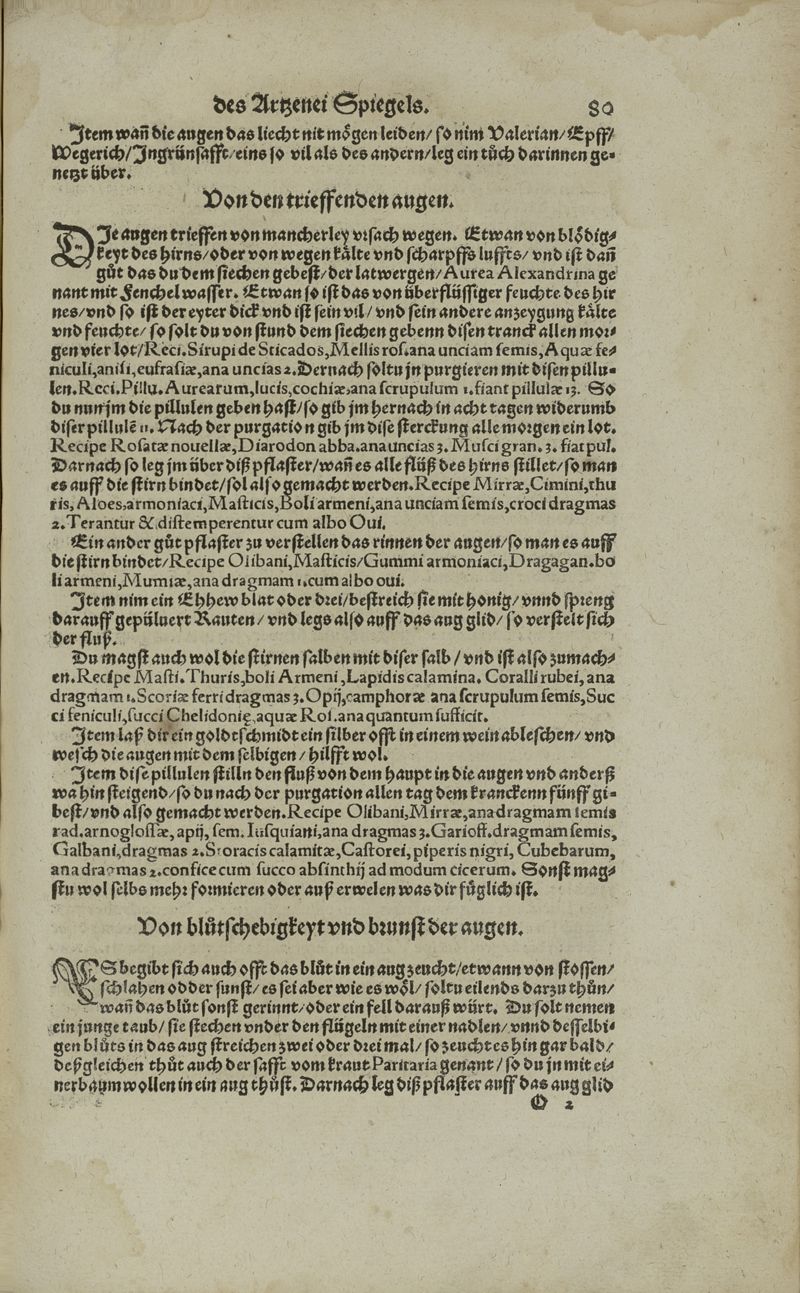 des Artzenei Spiegels. 80
Jtem wañ die augen das liecht nit mögen leiden/ so nim Valerian/ Epff/
Wegerich/ Jngrünsafft/ eins so vil als des andern/ leg ein tůch darinnen ge-
netzt über.
Von den trieffenden augen.
DJe augen trieffen von mancherley vrsach wegen. Etwan von blödig-
keyt des hirns/ oder von wegen kälte vnd scharpffs luffts/ vnd ist dañ
gůt das du dem siechen gebest/ der latwergen/ Aurea Alexandrina ge
nant mit Fenchel wasser. Etwan so ist das von überflüssiger feuchte des hir
nes/ vnd so ist der eyter dick vnd ist sein vil/ vnd sein andere anzeygung kälte
vnd feuchte/ so solt du von stund dem siechen gebenn disen tranck allen mor-
gen vier lot/ Reci. Sirupi de Sticados, Mellis ros. ana unciam semis, Aquæ fe-
niculi, anisi, eufrasiæ, ana uncias 2. Dernach soltu jn purgieren mit disen pillu-
len. Reci. Pillu. Aurearum, lucis, cochiæ, ana scrupulum 1. fiant pillulæ 13. So
du nun jm die pillulen geben hast/ so gib jm hernach in acht tagen widerumb
diser pillulē 11. Nach der purgation gib jm dise sterckung alle morgen ein lot.
Recipe Rosatæ nouellæ, Diarodon abba. ana uncias 3. Musci gran. 3. fiat pul.
Darnach so leg jm über diß pflaster/ wañ es alle flüß des hirns stillet/ so man
es auff die stirn bindet/ sol also gemacht werden. Recipe Mirræ, Cimini, thu
ris, Aloes, armoniaci, Masticis, Boli armeni, ana unciam semis, croci dragmas
2. Terantur & distemperentur cum albo Oui.
Ein ander gůt pflaster zu verstellen das rinnen der augen/ so man es auff
die stirn bindet/ Recipe Olibani, Masticis/ Gummi armoniaci, Dragagan. bo
li armeni, Mumiæ, ana dragmam 1. cum albo oui.
Jtem nim ein Ehhew blat oder drei/ bestreich sie mit honig/ vnnd spreng
darauff gepüluert Rauten/ vnd legs also auff das aug glid/ so verstelt sich
der fluß.
Du magst auch wol die stirnen salben mit diser salb/ vnd ist also zumach-
en. Recipe Masti. Thuris, boli Armeni, Lapidis calamina. Coralli rubei, ana
dragmam 1. Scoriæ ferri dragmas 3. Opij, camphoræ ana scrupulum semis, Suc
ci feniculi, succi Chelidonię, aquæ Ros. ana quantum sufficit.
Jtem laß dir ein goldtschmidt ein silber offt in einem wein ableschen/ vnd
wesch die augen mit dem selbigen/ hilfft wol.
Jtem dise pillulen stilln den fluß von dem haupt in die augen vnd anderß
wa hin steigend/ so du nach der purgation allen tag dem kranckenn fünff gi-
best/ vnd also gemacht werden. Recipe Olibani, Mirræ, ana dragmam semis
rad. arnoglossæ, apij, sem. Iusquiani, ana dragmas 3. Gariofi. dragmam semis,
Galbani, dragmas 2. Storacis calamitæ, Castorei, piperis nigri, Cubebarum,
ana dragmas 2. confice cum succo absinthij ad modum cicerum. Sonst mag-
stu wol selbs mehr formieren oder auß erwelen was dir füglich ist.
Von blůtschebigkeyt vnd brunst der augen.
ES begibt sich auch offt das blůt in ein aug zeucht/ etwann von stossen/
schlahen odder sunst/ es sei aber wie es wöl/ soltu eilends darzu thůn/
wañ das blůt sonst gerinnt/ oder ein fell darauß würt. Du solt nemen
ein junge taub/ sie stechen vnder den flügeln mit einer nadlen/ vnnd desselbi-
gen blůts in das aug streichen zwei oder drei mal/ so zeucht es hin gar bald/
deßgleichen thůt auch der safft vom kraut Paritaria genant/ so du jn mit ei-
ner baumwollen in ein aug thůst. Darnach leg diß pflaster auff das aug glid
O 2